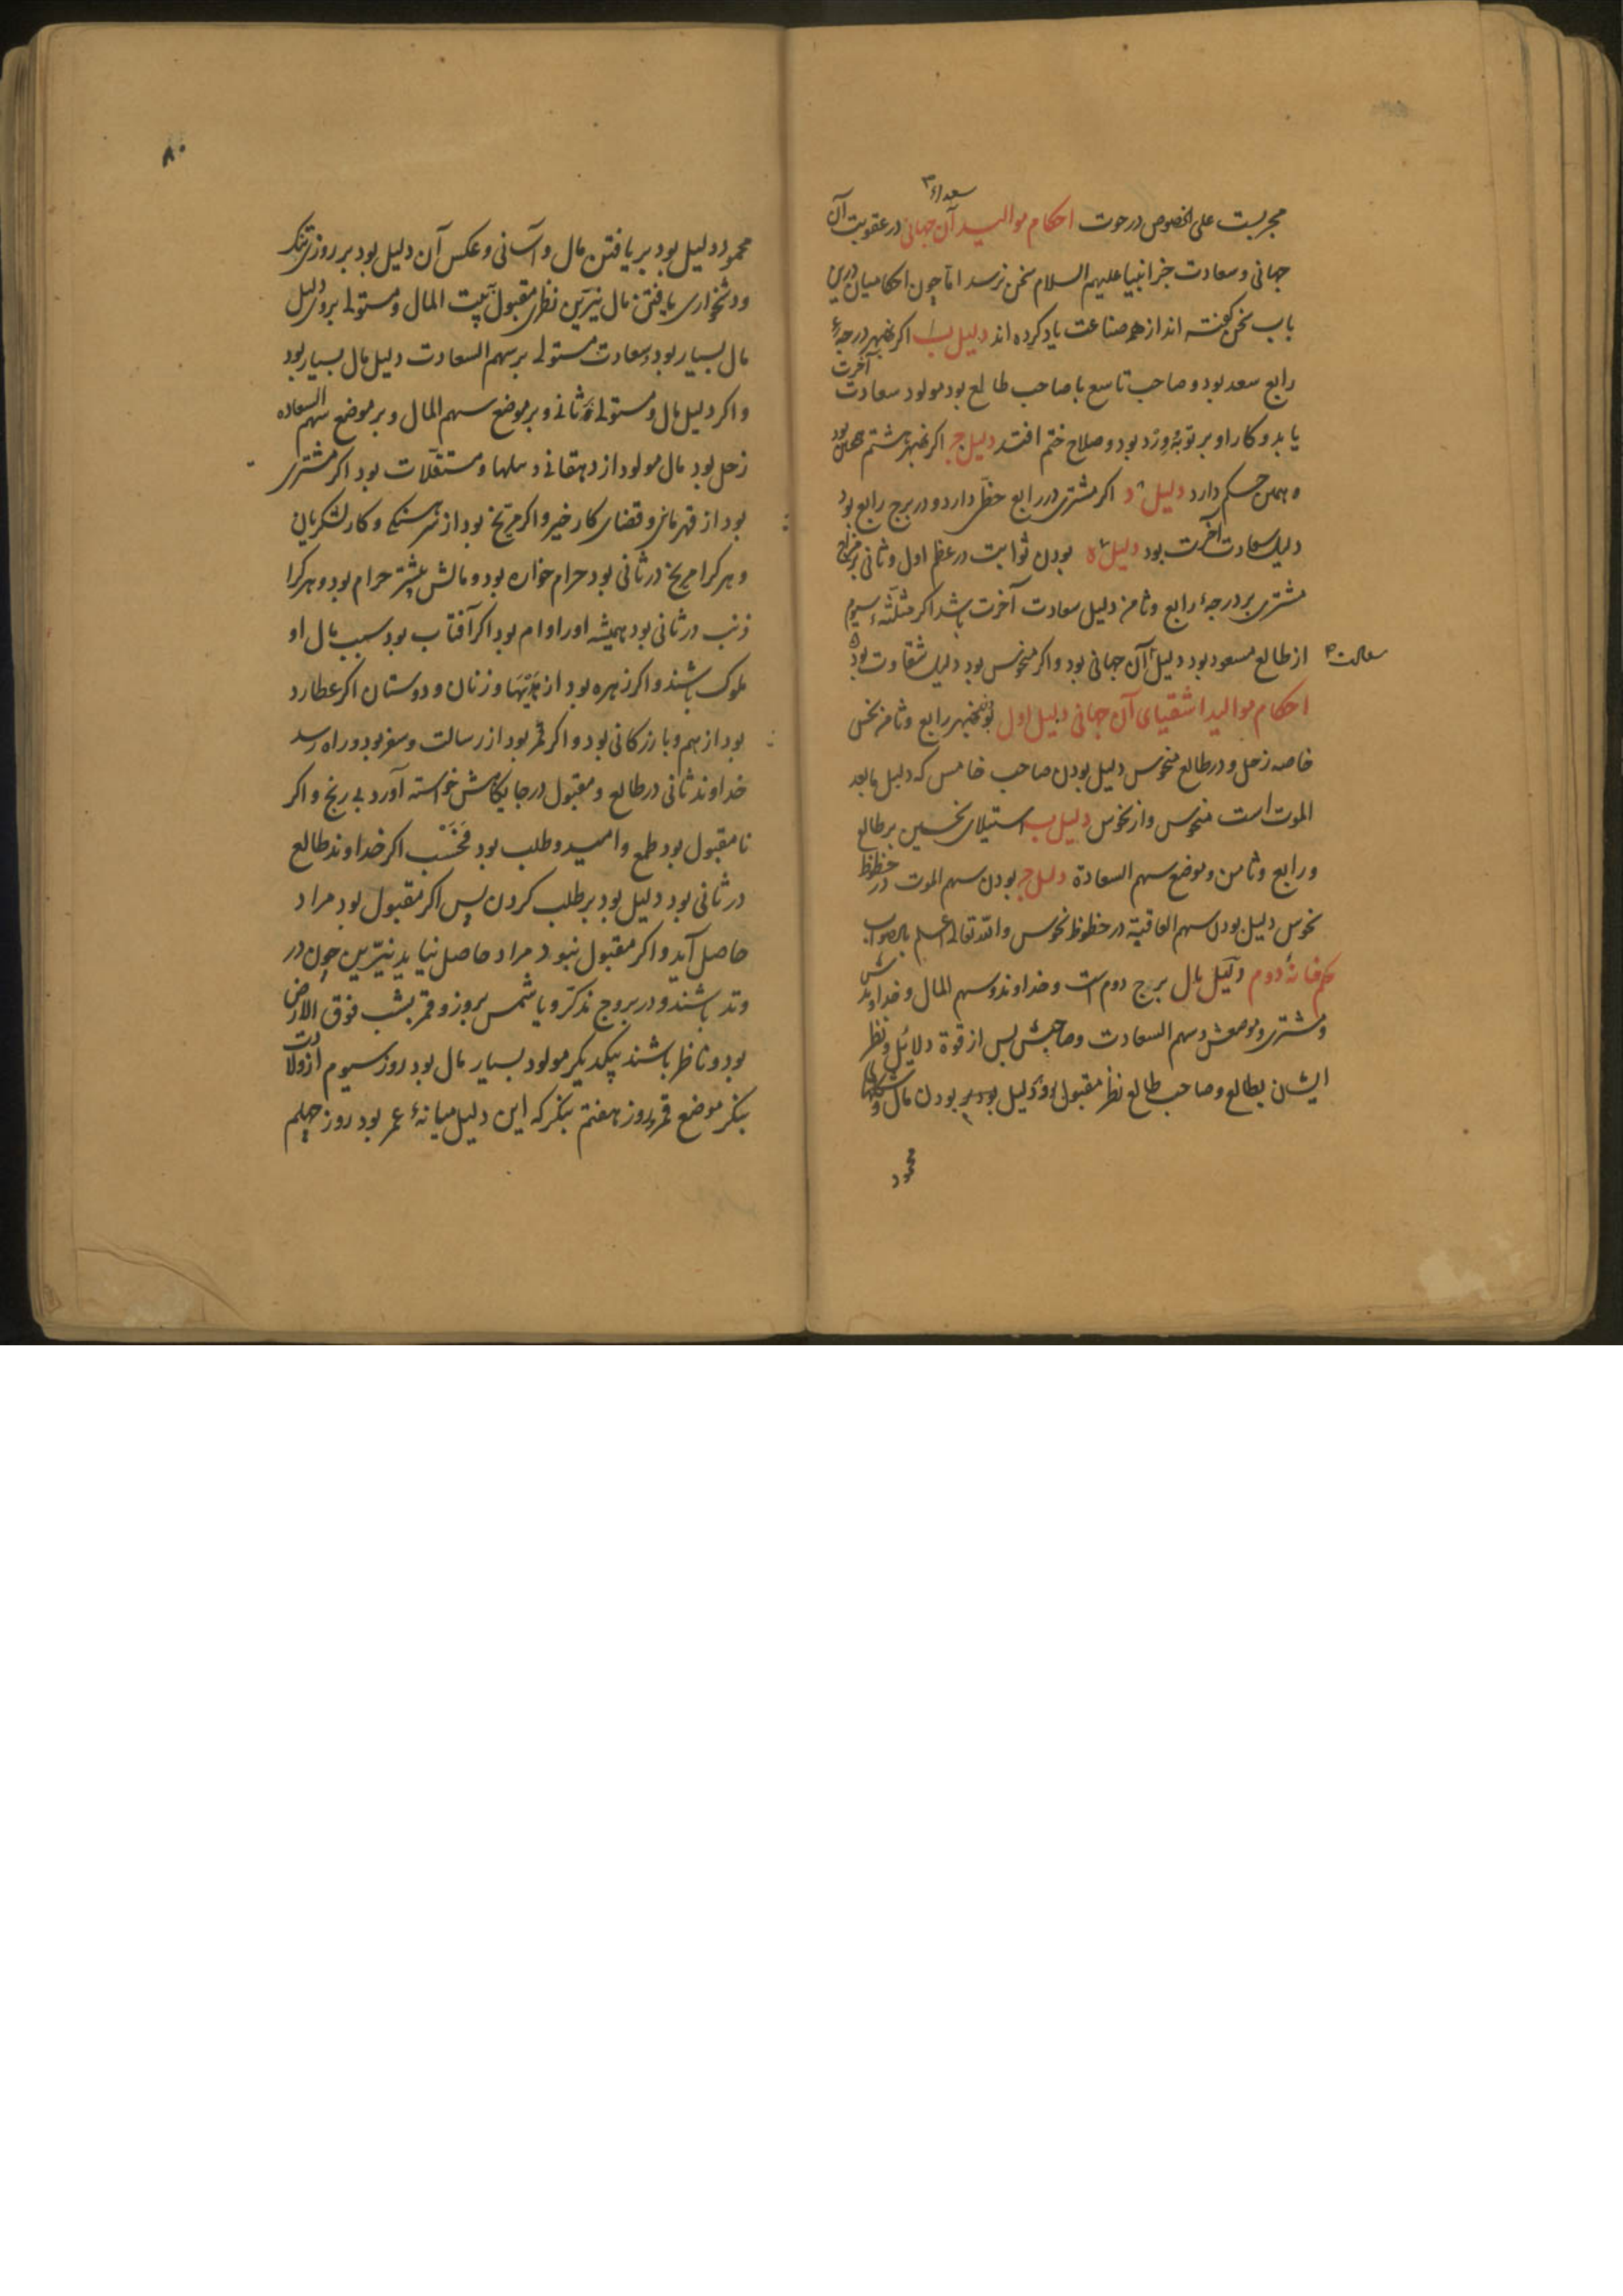 سعداء ۳
مجربست علی الخصوص در حوت احکام موالید آن جهانی در عقوبت آن
جهانی و سعادت جز انبیا علیهم السلام سخن نرسد اما چون احکامیان درین
باب سخن کفته اند از هم صناعت یاد کرده اند دلیل ب اکر نهبهر درجهٔ
رابع سعد بود و صاحب تاسع با صاحب طالع بود مولود سعادت آخرت
یابد و کار او بر توبه و زد بود و صلاح ختم افتد دلیل ج اکر نهبهر هشتم همان بود
همین حکم دارد دلیل د اکر مشتری در رابع حظی دارد و در برج رابع بود
دلیل سعادت آخرت بود دلیل ه بودن ثوابت در عظم اول و ثانی بر مزاج
مشتری بر درجهٔ رابع و ثامن دلیل سعادت آخرت باشد اکر مثلثهٔ سیوم
از طالع مسعود بود دلیل آن جهانی بود و اکر منحوس بود دلیل شقاوت بود
سعادت ۳
احکام موالید اشقیای آن جهانی دلیل اول بودن نهبهر رابع و ثامن نحس
خاصه زحل و در طالع منحوس دلیل بودن صاحب خامس که دلیل ما بعد
الموت است منحوس و از نحوس دلیل ب استیلای نحسین بر طالع
و رابع و ثامن و موضع سهم السعادة دلیل ج بودن سهم الموت در حظوظ
نحوس دلیل بودن سهم العاقبة در حظوظ نحوس والله تعالی اعلم بالصواب
حکم خانهٔ دوم دلیل مال برج دوم است و خداوندش و سهم المال و خداوندش
و مشتری و موضعش و سهم السعادت و صاحبش پس از قوة دلائل و نظر
ایشان بطالع و صاحب طالع نظر مقبول بود دلیل بود بر بودن مال و
محمود
۸۰
محمود دلیل بود بر یافتن مال و آسانی و عکس آن دلیل بود بر روزی تنک
و دشخواری یافتن مال نیرین نظر مقبول ببیت المال و مستولی برو دلیل
مال بسیار بود و سعادت مستولی بر سهم السعادت دلیل مال بسیار بود
و اکر دلیل مال و مستولی بر ثانی و بر موضع سهم المال و بر موضع سهم السعاده
زحل بود مال مولود از دهقانی و ... و مستغلات بود اکر مشتری
بود از قهرمانی و قضای کار خیر و اکر مریخ بود از سرهنکی و کار لشکریان
و هر کرا مریخ در ثانی بود حرام خواره بود و مالش بیشتر حرام بود و هر کرا
ذنب در ثانی بود همیشه او را وام بود اکر آفتاب بود سبب مال او
ملوک باشند و اکر زهره بود از هدیتها و زنان و دوستان اکر عطارد
بود از سهم و بازرکانی بود و اکر قمر بود از رسالت و سفر بود و راه رسد
خداوند ثانی در طالع و مقبول در جایکاهش خواسته آورد بی رنج و اکر
نا مقبول بود طمع و امید و طلب بود فحسب اکر خداوند طالع
در ثانی بود دلیل بود بر طلب کردن پس اکر مقبول بود مراد
حاصل آید و اکر مقبول نبود مراد حاصل نیاید نیرین چون در
وتد باشند و در بروج مذکر و یا شمس بروز و قمر بشب فوق الارض
بود و ناظر باشند بیکدیکر مولود بسیار مال بود روز سیوم از ولادت
بنکر موضع قمر و روز هفتم بنکر که این دلیل میانهٔ عمر بود روز چهلم